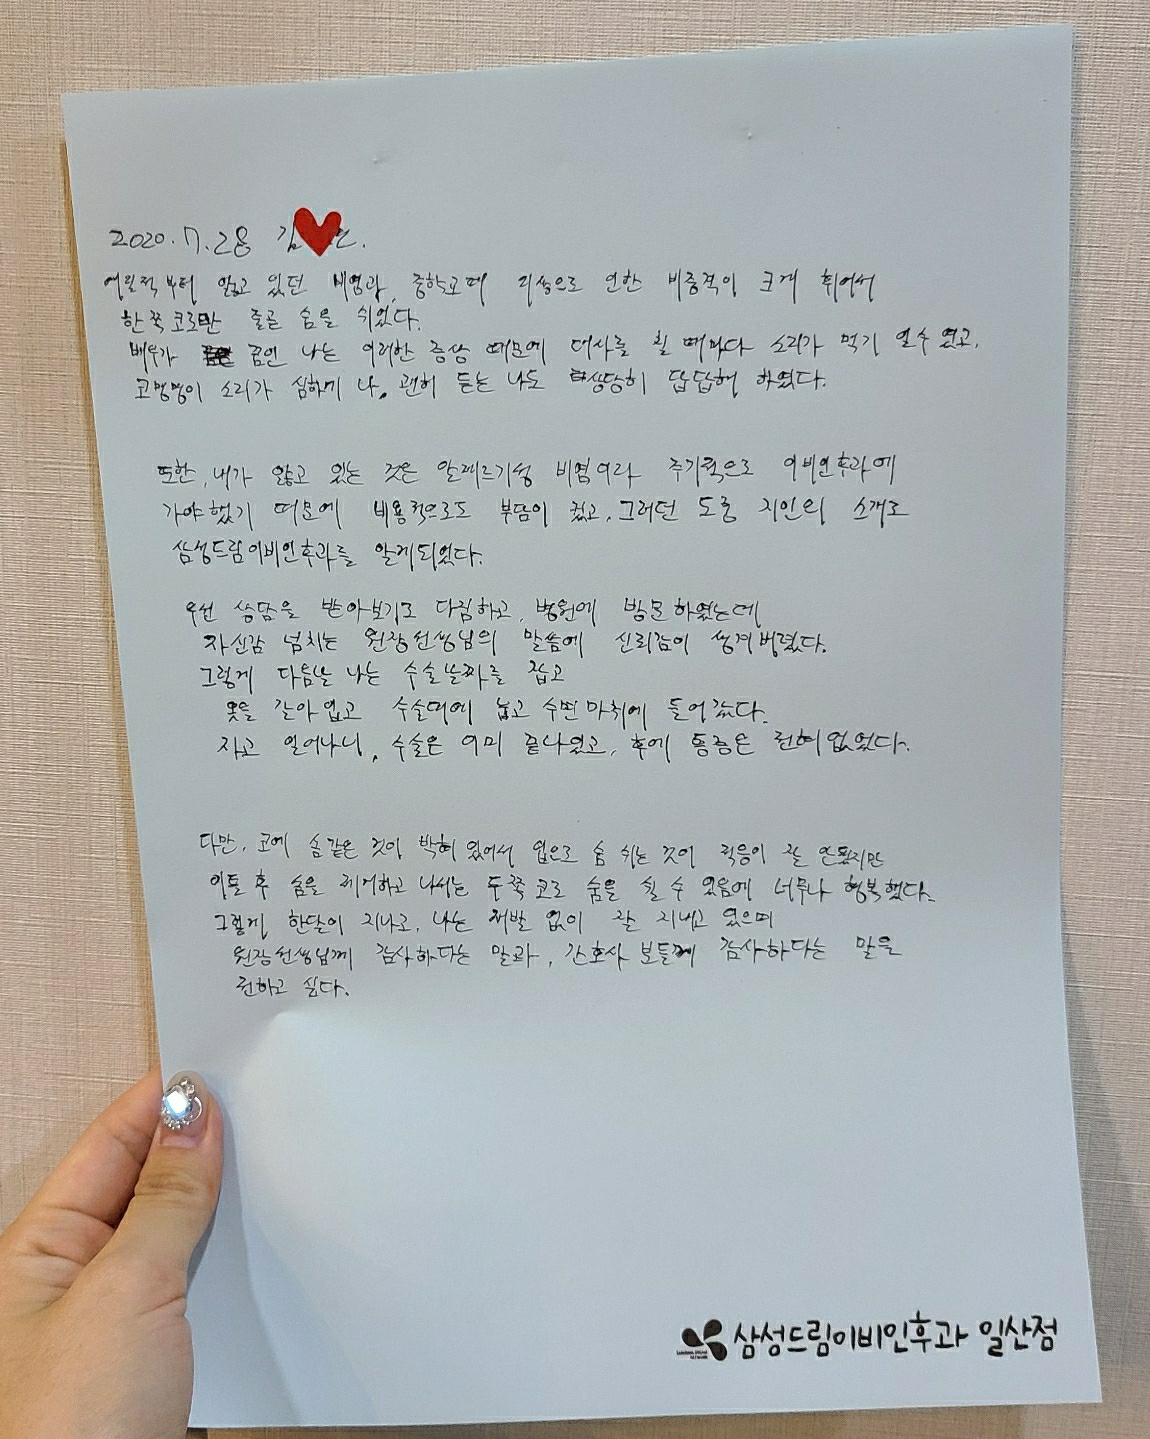 2020.7.28 김
어릴적부터 앓고 있던 비염과, 중학교때 리썰으로 인한 비중격이 크게 휘어서
한쪽 코로만 줄곧 숨을 쉬었다.
배우가 꿈인 나는 이러한 증상 때문에 대사를 칠 때마다 소리가 먹기 일수 였고,
코맹맹이 소리가 심하게 나, 괜히 듣는 나도 상당히 답답해 하였다.
또한, 내가 앓고 있는 것은 알레르기성 비염이라 주기적으로 이비인후과에
가야했기 때문에 비용적으로도 부담이 컸고, 그러던 도중 지인의 소개로
삼성드림이비인후과를 알게되었다.
우선 상담을 받아보기로 다짐하고, 병원에 방문하였는데
자신감 넘치는 원장선생님의 말씀에 신뢰감이 생겨버렸다.
그렇게 다음날 나는 수술날짜를 잡고
옷을 갈아입고 수술대에 눕고 수면마취에 들어갔다.
자고 일어나니, 수술은 이미 끝나있고, 후에 통증은 전혀 없었다.
다만, 코에 솜같은 것이 박혀 있어서 입으로 숨 쉬는 것이 적응이 잘 안됐지만
이틀 후 솜을 제거하고 나서는 두쪽 코로 숨을 쉴 수 있음에 너무나 행복했다.
그렇게 한달이 지나고, 나는 재발 없이 잘 지내고 있으며
원장선생님께 감사하다는 말과, 간호사 분들께 감사하다는 말을
전하고 싶다.
삼성드림이비인후과 일산점